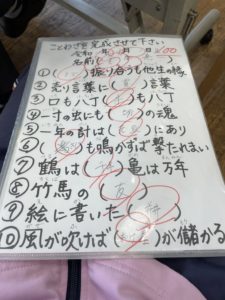 ことわざを完成させて下さい
令和 年 月 日
名前( )
① ( )振り合うも他生の縁
② 売り言葉に( )言葉
③ 口も八丁( )も八丁
④ 一寸の虫にも( )の魂
⑤ 一年の計は( )にあり
⑥ ( )も鳴かずば撃たれまい
⑦ 鶴は(千年)亀は万年
⑧ 竹馬の(友)
⑨ 絵に書いた(餅)
⑩ 風が吹けば( )が儲かる